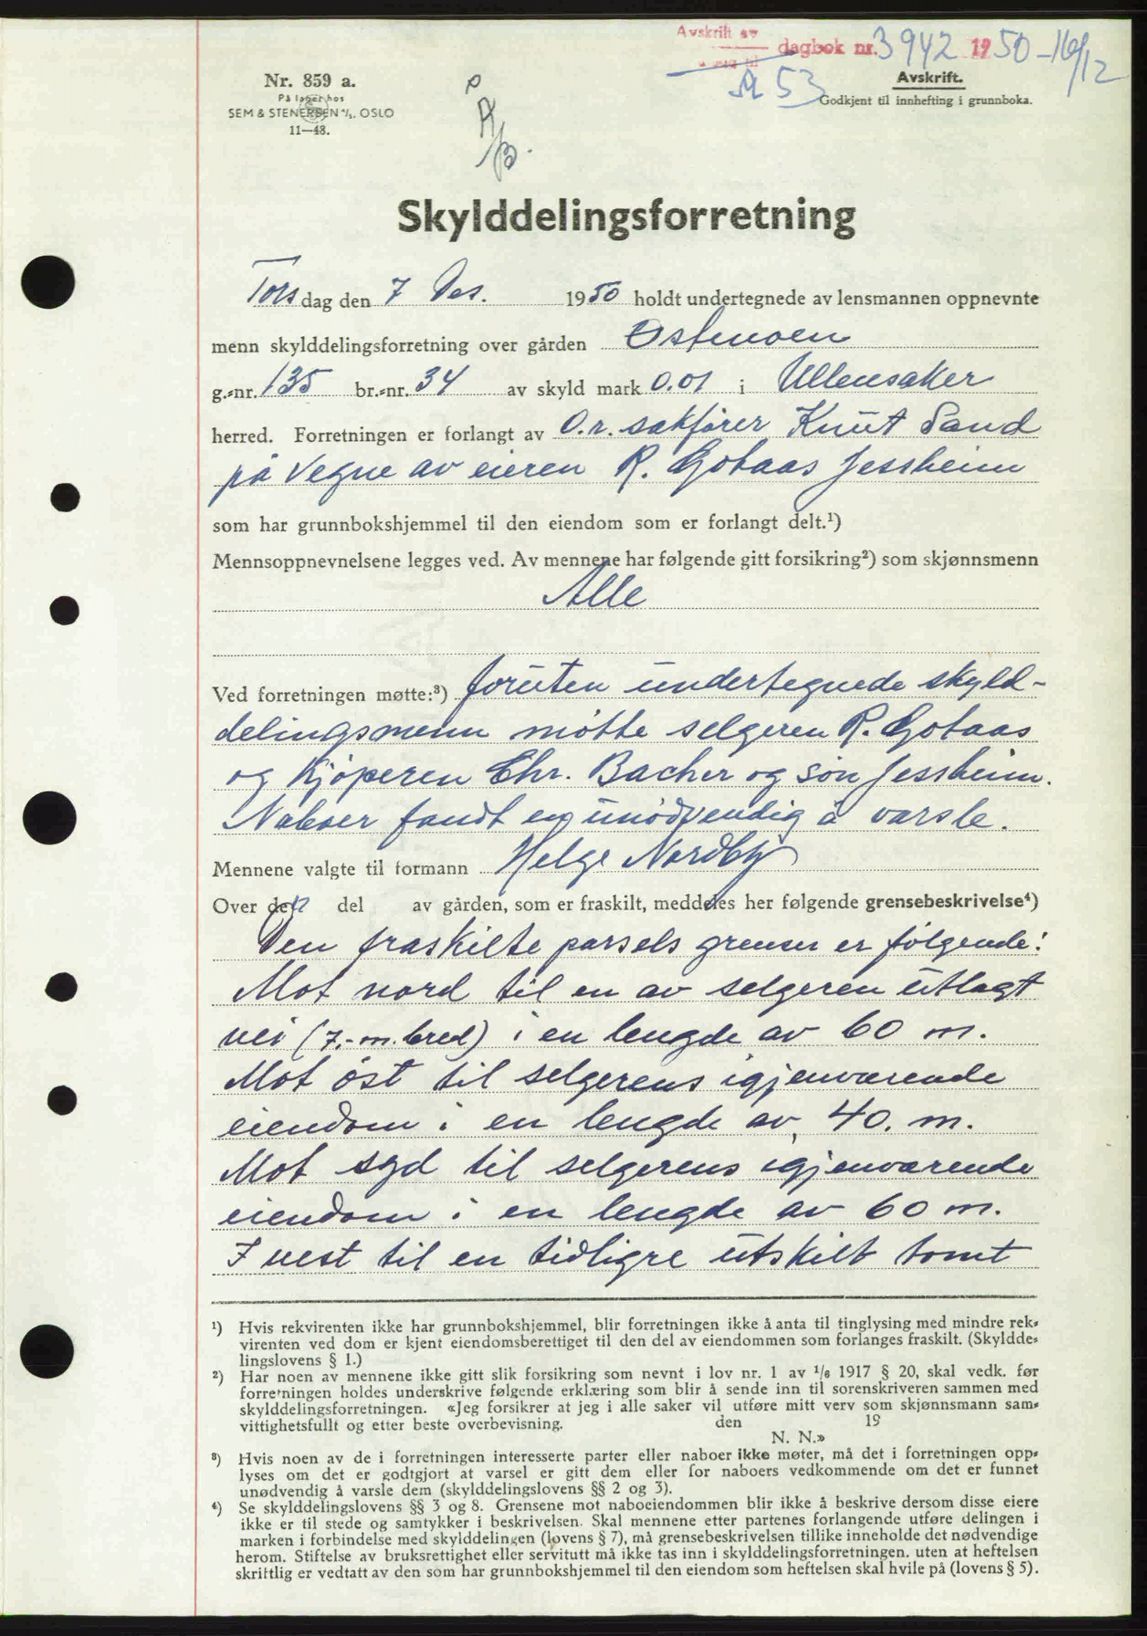 Avskrift av
dagbok nr. 3942 1950-16/12
A 53
Avskrift.
Godkjent til innhefting i grunnboka.
Nr. 859 a.
På lager hos
SEM & STENERSEN A/S. OSLO
11—48.
A/B.
Skylddelingsforretning
Torsdag den 7 Des. 1950 holdt undertegnede av lensmannen oppnevnte
menn skylddelingsforretning over gården Østmoen
g.-nr. 135 br.-nr. 34 av skyld mark 0.01 i Ullensaker
herred. Forretningen er forlangt av O.r. sakfører Knut Sand
på vegne av eieren R. Gotaas Jessheim
som har grunnbokshjemmel til den eiendom som er forlangt delt.¹)
Mennsoppnevnelsene legges ved. Av mennene har følgende gitt forsikring²) som skjønnsmenn
Alle
Ved forretningen møtte:³) foruten undertegnede skyld-
delingsmenn møtte selgeren R. Gotaas
og kjøperen Chr. Bacher og søn Jessheim.
Naboer fandt en unødvendig å varsle.
Mennene valgte til formann Helge Nordby
Over den del av gården, som er fraskilt, meddeles her følgende grensebeskrivelse⁴)
Den fraskilte parsels grenser er følgende:
Mot nord til en av selgeren utlagt
vei (7.-m. bred) i en lengde av 60 m.
Mot øst til selgerens igjenværende
eiendom i en lengde av 40. m.
Mot syd til selgerens igjenværende
eiendom i en lengde av 60 m.
I vest til en tidligre utskilt tomt
¹) Hvis rekvirenten ikke har grunnbokshjemmel, blir forretningen ikke å anta til tinglysing med mindre rek-
virenten ved dom er kjent eiendomsberettiget til den del av eiendommen som forlanges fraskilt. (Skyldde-
lingslovens § 1.)
²) Har noen av mennene ikke gitt slik forsikring som nevnt i lov nr. 1 av 1/6 1917 § 20, skal vedk. før
forretningen holdes underskrive følgende erklæring som blir å sende inn til sorenskriveren sammen med
skylddelingsforretningen. «Jeg forsikrer at jeg i alle saker vil utføre mitt verv som skjønnsmann sam-
vittighetsfullt og etter beste overbevisning. den 19
N. N.»
³) Hvis noen av de i forretningen interesserte parter eller naboer ikke møter, må det i forretningen opp-
lyses om det er godtgjort at varsel er gitt dem eller for naboers vedkommende om det er funnet
unødvendig å varsle dem (skylddelingslovens §§ 2 og 3).
⁴) Se skylddelingslovens §§ 3 og 8. Grensene mot naboeiendommen blir ikke å beskrive dersom disse eiere
ikke er til stede og samtykker i beskrivelsen. Skal mennene etter partenes forlangende utføre delingen i
marken i forbindelse med skylddelingen (lovens § 7), må grensebeskrivelsen tillike inneholde det nødvendige
herom. Stiftelse av bruksrettighet eller servitutt må ikke tas inn i skylddelingsforretningen, uten at heftelsen
skriftlig er vedtatt av den som har grunnbokshjemmel til den eiendom som heftelsen skal hvile på (lovens § 5).